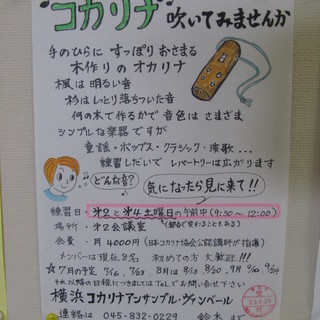 ♪コカリナ♪吹いてみませんか
手のひらに すっぽりおさまる
木作りのオカリナ
楓は明るい音
杉はしっとり落ちついた音
何の木で作るかで 音色は さまざま
シンプルな楽器ですが
童謡・ポップス・クラシック・演歌...
練習しだいで レパートリーは広がります
どんな音?
気になったら見に来て!!
練習日・第2と第4土曜日の午前中(9:30～12:00)
場所・第2会議室
会費・月4000円(日本コカリナ協会公認講師が指導)
メンバーは現在8名 初めての方 大歓迎!!!
☆7月の予定 7/16
それ以降の日程につきましてはTelでお問い合せ下さい
横浜コカリナアンサンブル・ヴァンベール
連絡は 045-832-0229 鈴木まで